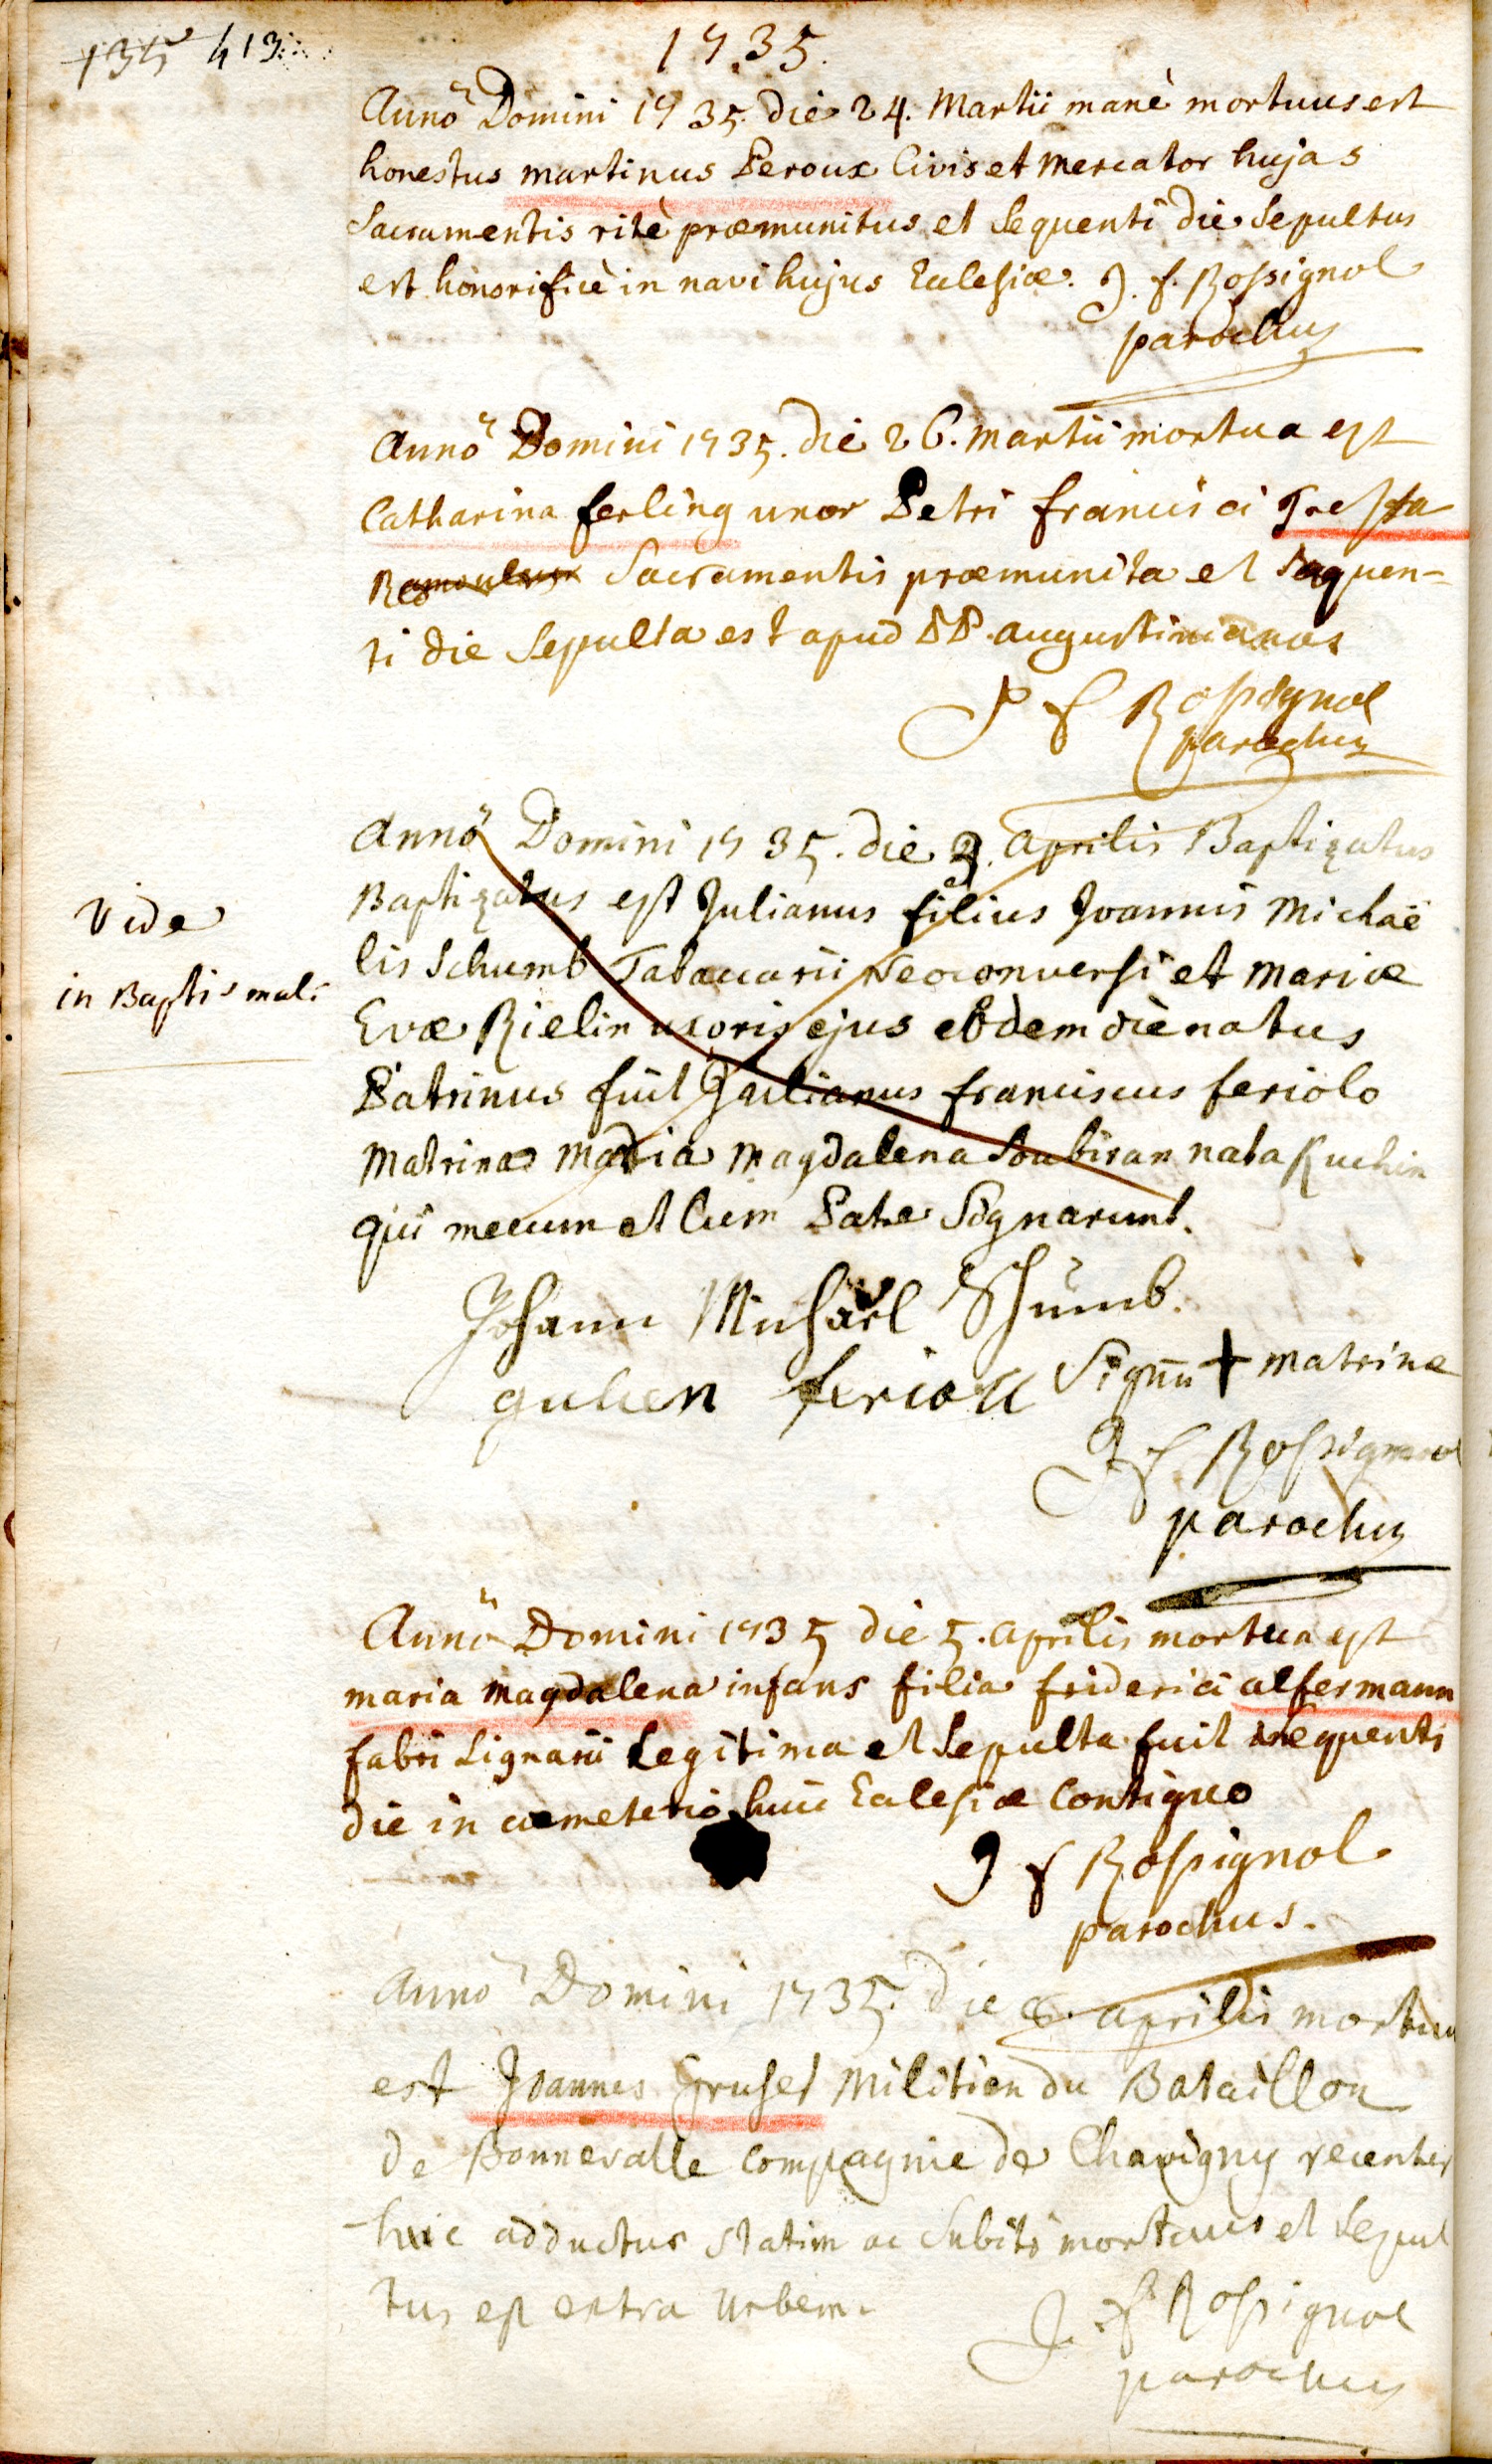 135 413
1735.
Anno Domini 1735. die 24. Martii manè mortuus est
honestus martinus Peroux Civis et Mercator hujas
Sacramentis ritè præmunitus et Sequenti die Sepultus
est honorificè in navi hujus Ecclesiæ. J. f. Rossignol
parochus
Anno Domini 1735. die 26. martii mortua est
Catharina ferling uxor Petri francisci Tresta
Sacramentis præmunita et Sequen-
ti die Sepulta est apud PP. augustinianos
J f Rossignol
parochus
Anno Domini 1735. die 3. aprilis Baptizatus
Baptizatus est Julianus filius Joannis Michaë
lis Schumb Tabaccarii Neoconversi et Mariæ
Evæ Rielin uxoris ejus eodem die natus
Patrinus fuit Julianus franciscus feriolo
Matrina Maria Magdalena Soubiran nata Ruchin
qui mecum et Cum Patre Signarunt.
Vide
in Baptismali
Johann Michael Schumb.
gulien feriolle Signū + matrinæ
J f. Rossignol
parochus
Anno Domini 1735 die 5. aprilis mortua est
maria Magdalena infans filia friderici alfermann
fabri Lignarii Legitima et Sepulta fuit sequenti
die in cæmeterio huic Ecclesiæ Contiguo
J f Rossignol
parochus.
Anno Domini 1735. die 6. aprilis mortuus
est Joannes Gruset Militien du Bataillon
de Bonnevalle Compagnie de Chavigny recenter
huc adductus statim ac Subito mortuus et Sepul
tus est extra Urbem.
J. f Rossignol
parochus